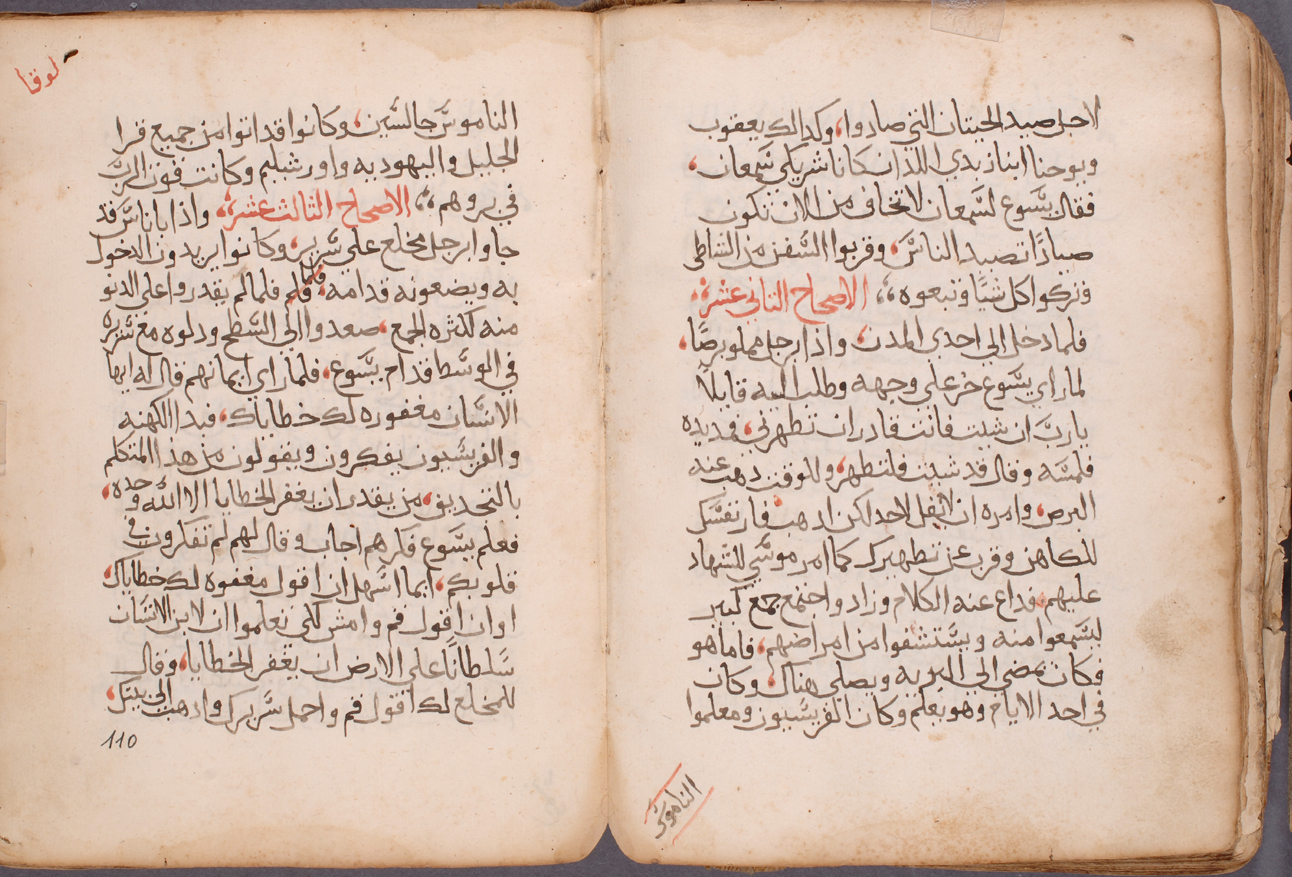 لاجل صيد الحيتان التي صادوا، وكدالك يعقوب
ويوحنا ابنا زبدي اللذان كانا شريكي سمعان،
فقال يسوع لسمعان لا تخاف من الان تكون
صيادًا تصيد الناس، وقربوا السفن من الشاطى
وتركوا كل شيًا وتبعوه ،، الاصحاح التاني عشر،،
فلما دخل الى احدى المدن، واذا برجل مملو برصًا،
لما راى يسوع خر على وجهه وطلب اليه قايلاً
يا رب ان شيت فانت قادر ان تطهرني، فمد يده
فلمسه وقال قد شيت فلتطهر، وللوقت دهب عنه
البرص، وامره ان لا تقل لاحد لكن ادهب فار نفسك
للكاهن وقرب عن تطهيرك كما امر موسى للشهاد
عليهم، فداع عنه الكلام وزاد واجتمع جمع كبير
ليسمعوا منه ويستشفوا من امراضهم، فاما هو
فكان يمضى الى البريه ويصلى هناك، وكان
في احد الايام وهو يعلم وكان الفريسيون ومعلموا
الناموس
لوقا
الناموس جالسين، وكانوا قد اتوا من جميع قرا
الجليل واليهوديه واورشليم وكانت قوت الرب
في بروهم ،، الاصحاح الثالث عشر،، واذا باناس قد
جاوا برجل مخلع على سرير، وكانوا يريدون الدخول
به ويضعونه قدامه، فلما لم يقدروا على الدنو
منه لكثره الجمع، صعدوا الى السطح ودلوه مع سريره
في الوسط قدام يسوع، فلما راى ايمانهم قال له ايها
الانسان مغفوره لك خطاياك، فبدا الكهنه
والفريسيون يفكرون ويقولون من هذا المتكلم
بالتجديق، من يقدر ان يغفر الخطايا الا الله وحده،
فعلم يسوع فكرهم اجاب وقال لهم لم تفكرون في
قلوبكم، ايما اسهل ان اقول مغفوه لك خطاياك،
او ان اقول قم وامش لكى تعلموا ان لابن الانسان
سلطانًا على الارض ان يغفر الخطايا، وقال
للمخلع لك اقول قم واحمل سريرك وادهب الى بيتك،
110